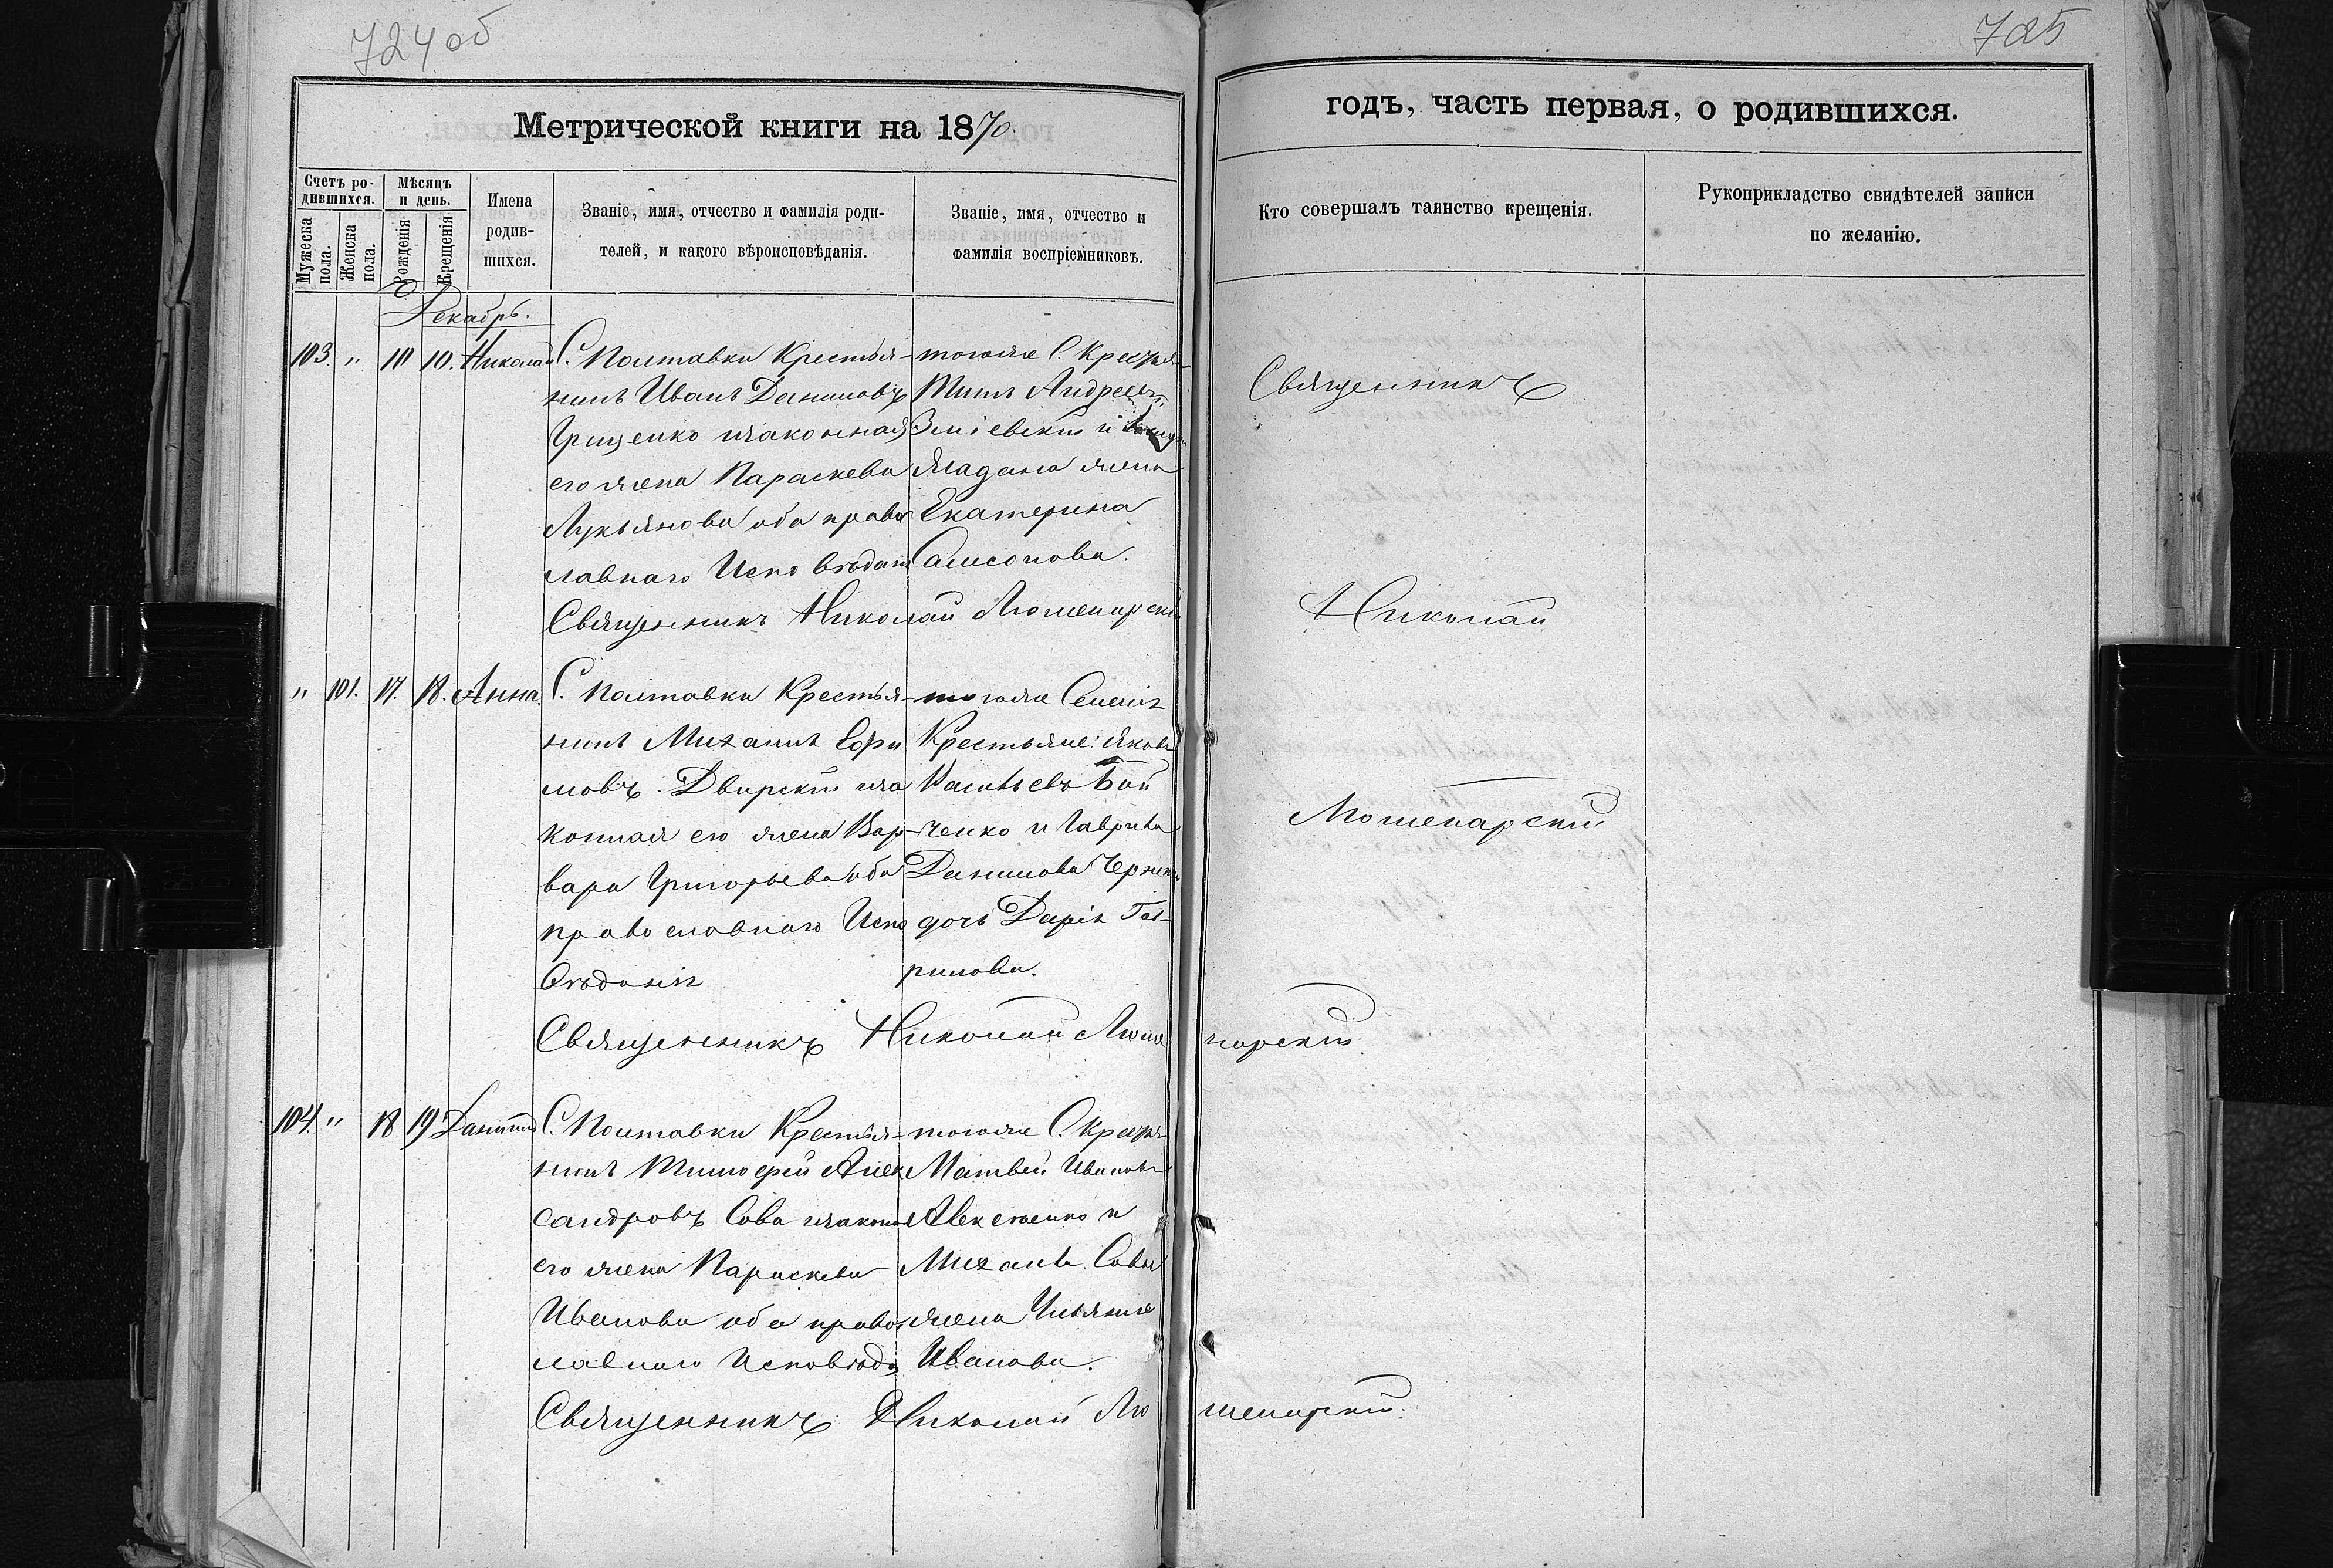 724 об
725
Метрической книги на 1870.
годъ, часть первая, о родившихся.
Счетъ ро-
дившихся.
Мужеска
пола.
Женска
пола.
Мѣсяцъ
и день.
Рожденія
Крещенія
Имена
родив-
шихся.
Званіе, имя, отчество и фамилія роди-
телей, и какого вѣроисповѣданія.
Званіе, имя, отчество и
фамилія воспріемниковъ.
Кто совершалъ таинство крещенія.
Рукоприкладство свидѣтелей записи
по желанію.
Декабрь.
103. " 10 10. Николай
С. Полтавки Крестья-
нинъ Иванъ Даниловъ
Грищенко изаконная
его жена Параскева
Лукьянова оба право
славнаго Исповѣдан
тогоже С. Крестья
Титъ Андреевъ
Зміевскій и
жена
Екатерина
Самсонова.
Священникъ Николай
Священникъ
Николай
" 101. 17. 18. Анна.
С. Полтавки Крестья-
нинъ Михаилъ Ефи
мовъ Дворскій иза
конная его жена Вар-
вара Григорьева оба
православнаго Испо
вѣданія
тогоже Селенія
Крестьяне: Яковъ
Бой
ченко и Гаврила
Данилова
дочь Дарія Гав-
рилова.
Священникъ Николай
104. " 18 19 Даніилъ
С. Полтавки Крестья-
нинъ Тимофей Алек
сандровъ Сова изаконн
его жена Параскева
Иванова оба правос
лавнаго Исповѣда
тогоже С. Крестья
Матвей Ивановъ
Алексѣенко и
Михаила Совы
жена Ульянія
Иванова.
Священникъ Николай